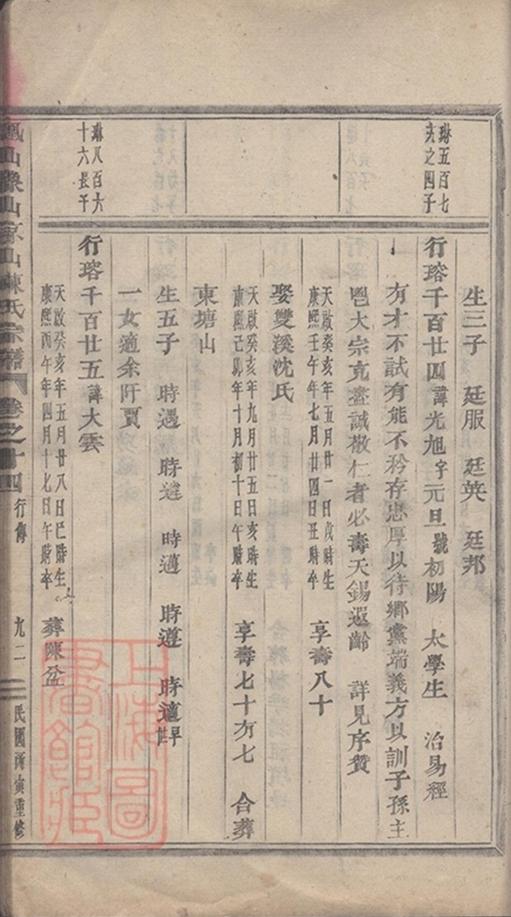 生三子　廷服　廷英　廷邦
琳五百七
夫之四子
行瑢千百廿四諱光旭字元旦號初陽　太學生　治易經
有才不試有能不矜存忠厚以待鄉黨端義方以訓子孫主
鬯大宗克盡誠敬仁者必壽天錫遐齡　詳見序贊
天啟癸亥年五月廿一日戊時生
康熙壬午年七月廿四日丑時卒
享壽八十
娶雙溪沈氏
天啟癸亥年九月廿五日亥時生
康熙己卯年十月初十日子時卒
享壽七十有七　合葬
東塘山
生五子　時遇　時遴　時邁　時遵　時適早世
一女適余阡賈
琳八百六
十六長子
行瑢千百廿五諱大雲
天啟癸亥年五月廿八日巳時生
康熙丙午年四月十七日午時卒
葬陳盆
山象山家山陳氏宗譜　卷之十四　行傳　九二　民國丙寅重修
上海圖書館藏